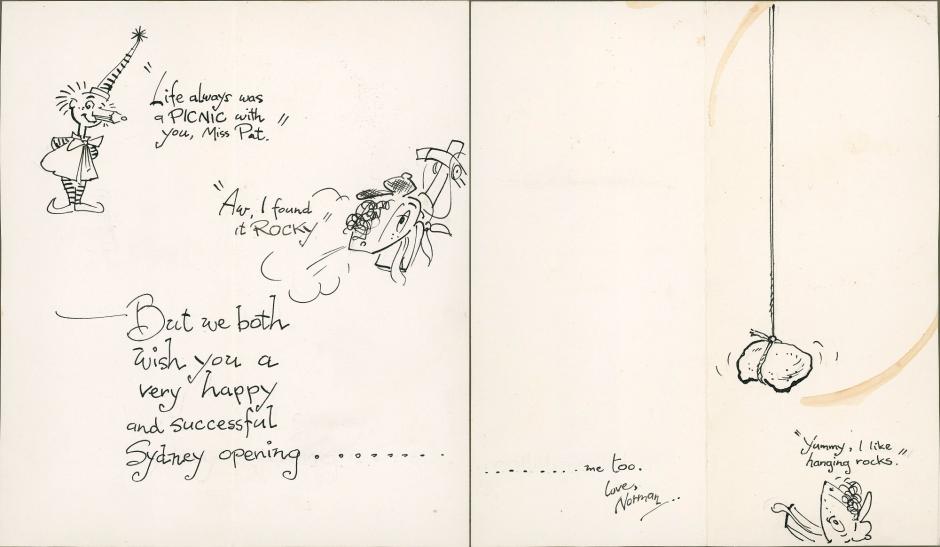 "Life always was
a PICNIC with
you, Miss Pat."
"Aw, I found
it ROCKY"
— But we both
wish you a
very happy
and successful
Sydney opening . . . . . . . . .
. . . . . . . . . me too.
Love,
Norman...
"Yummy, I like
hanging rocks."